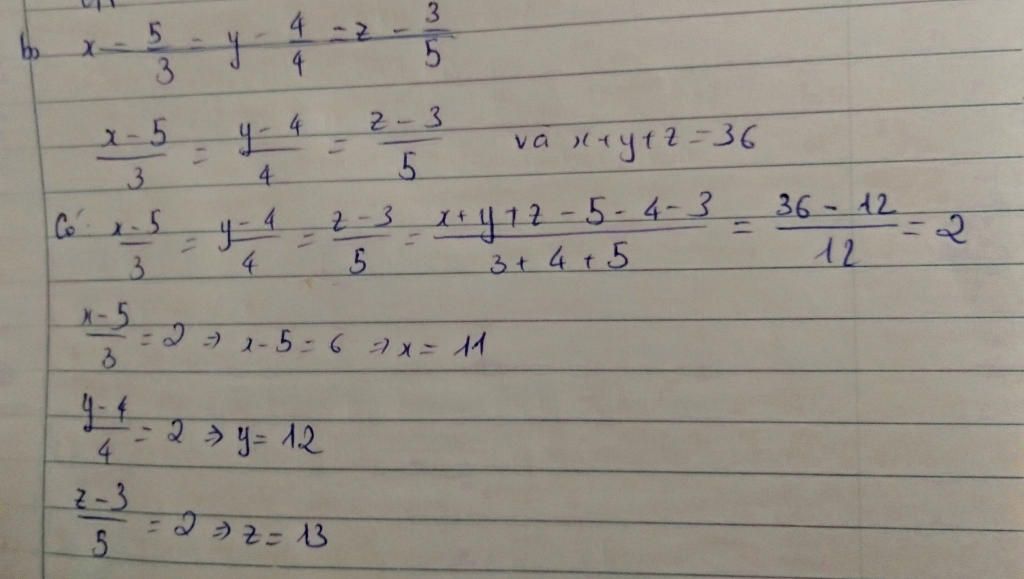 b, x - 5/3 = y - 4/4 = z - 3/5
(x-5)/3 = (y-4)/4 = (z-3)/5 và x+y+z=36
Có: (x-5)/3 = (y-4)/4 = (z-3)/5 = (x+y+z-5-4-3)/(3+4+5) = (36-12)/12 = 2
(x-5)/3 = 2 => x-5=6 => x=11
(y-4)/4 = 2 => y=12
(z-3)/5 = 2 => z=13